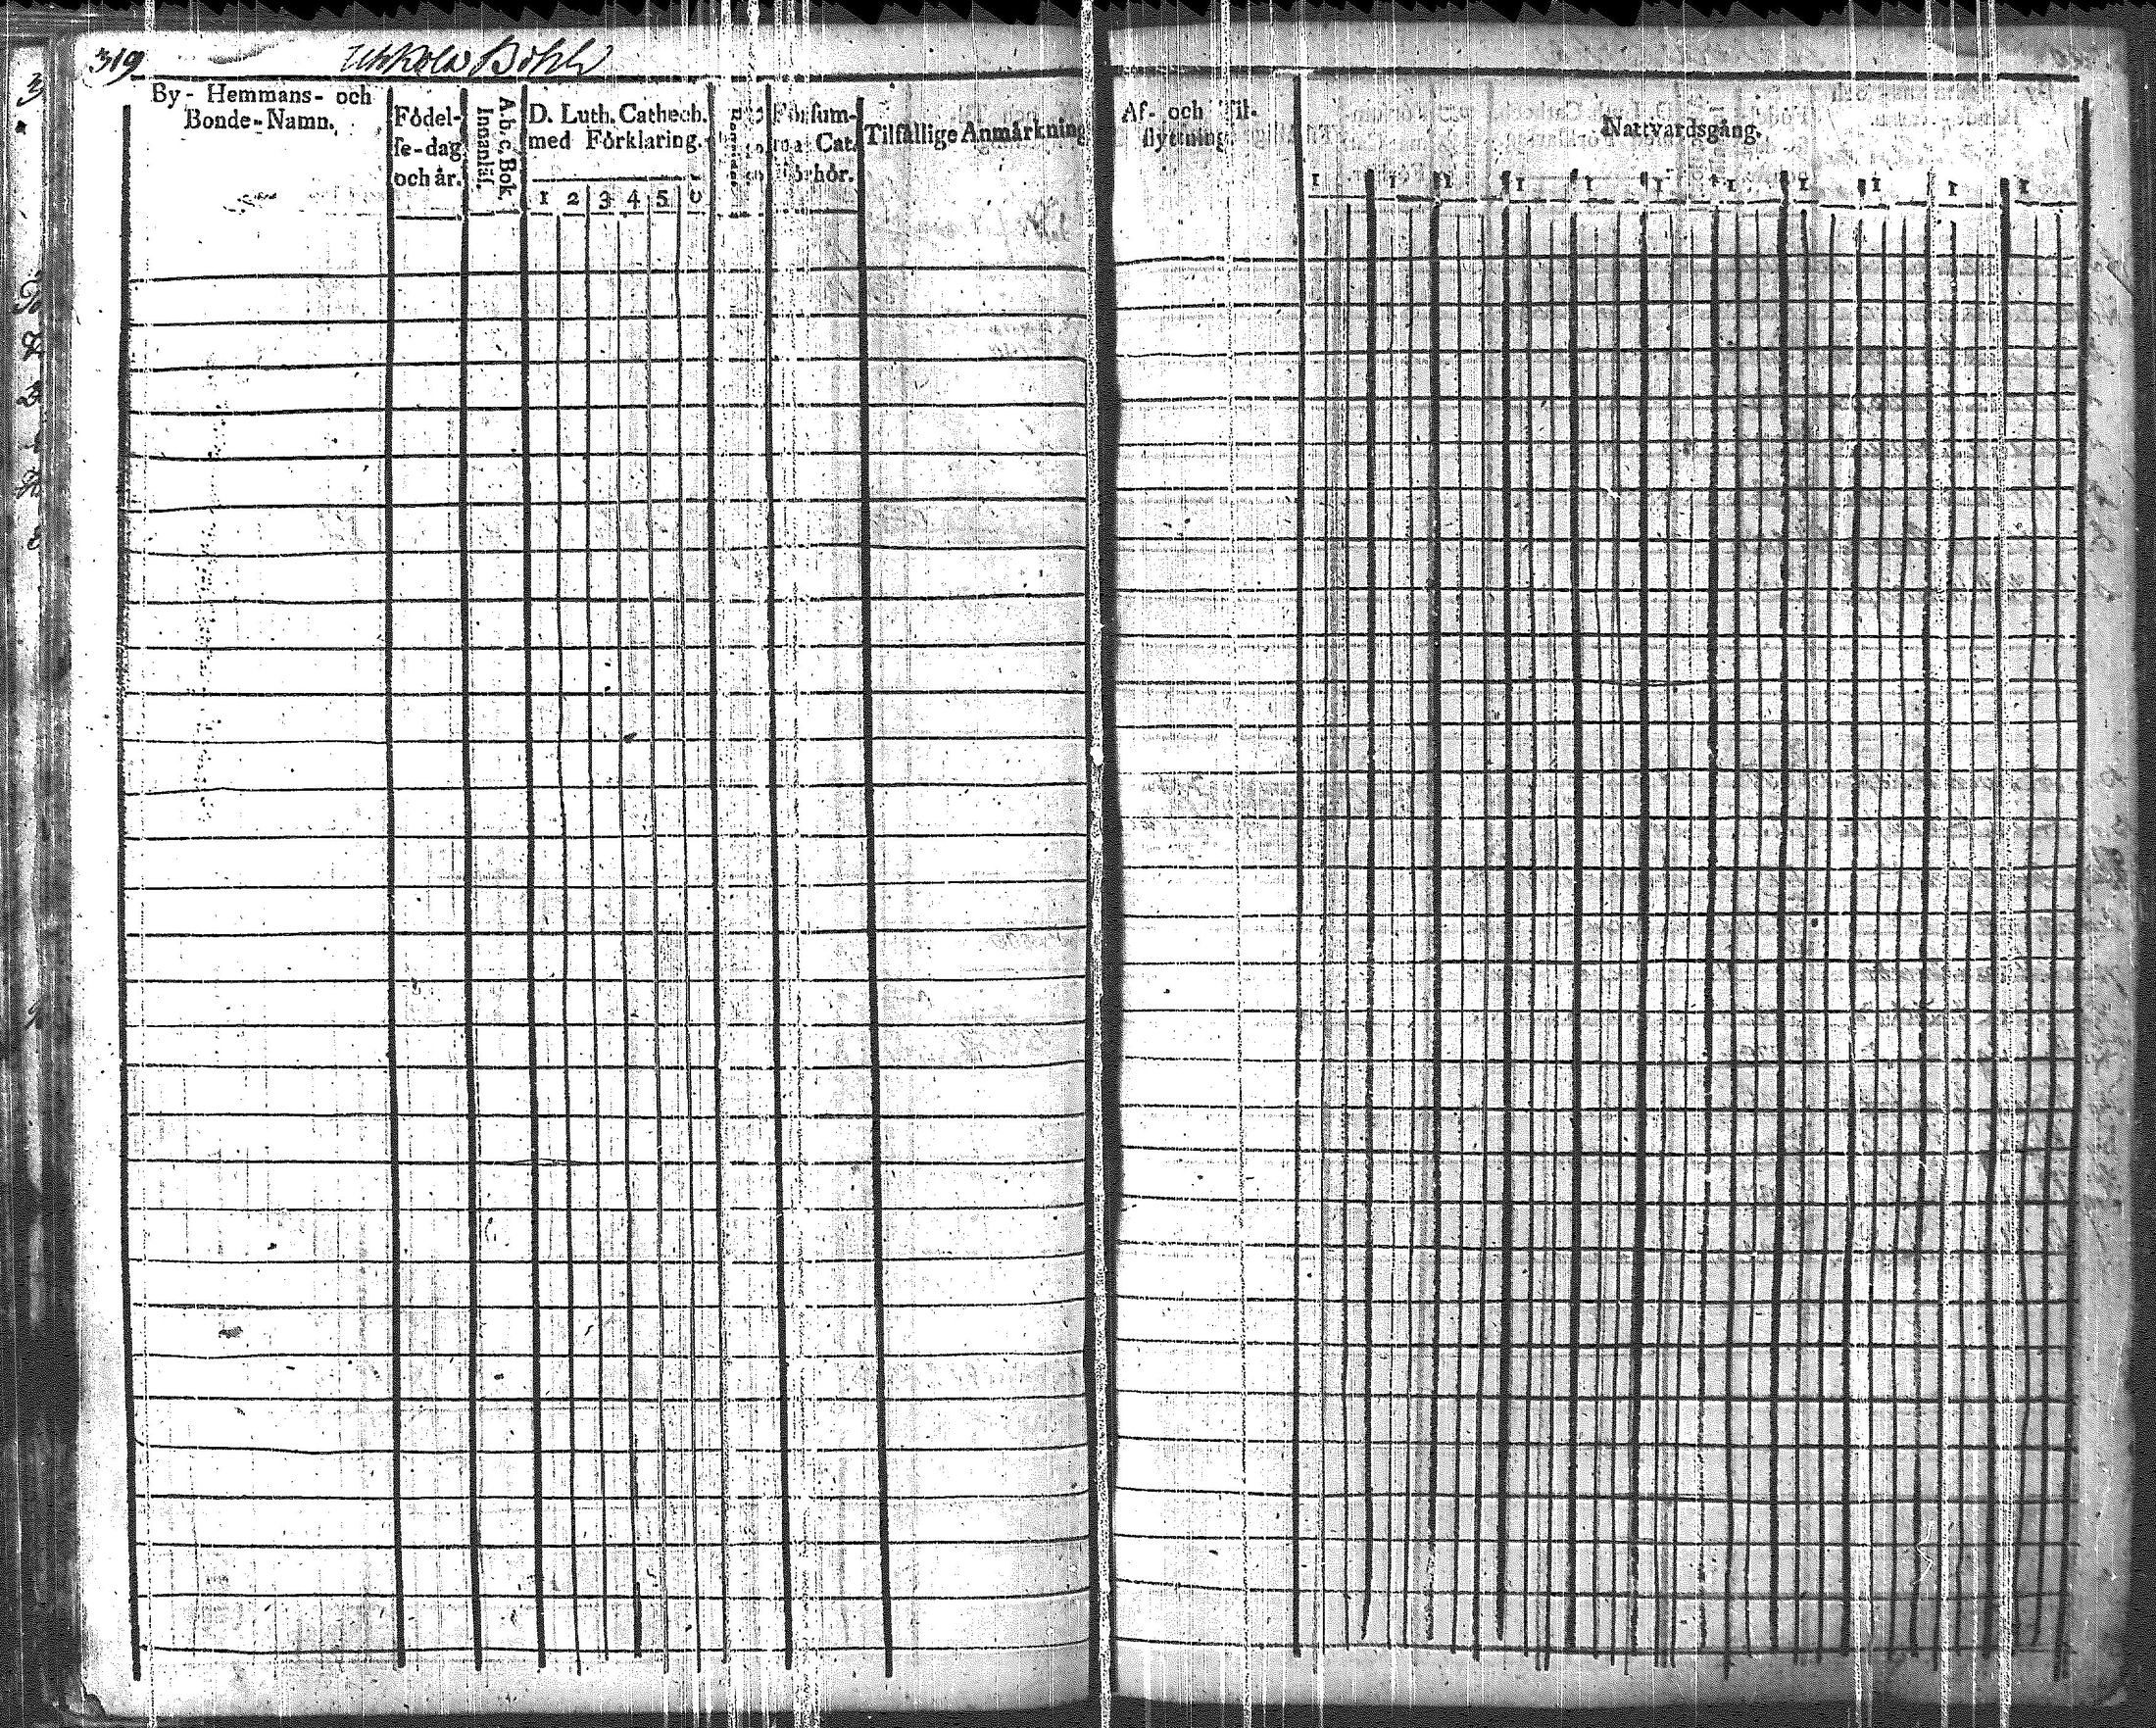 319
By- Hemmans- och
Bonde-Namn.
Födel-
se-dag
och år.
A.b.c Bok.
Innanläs.
D. Luth. Cathech.
med Förklaring.
1 2 3 4 5 6
Försum-
Cat.
förhör.
Tilfällige Anmärkning
Af- och Til.
flyttning.
Nattvardsgång.
1 1 1 1 1 1 1 1 1 1 1